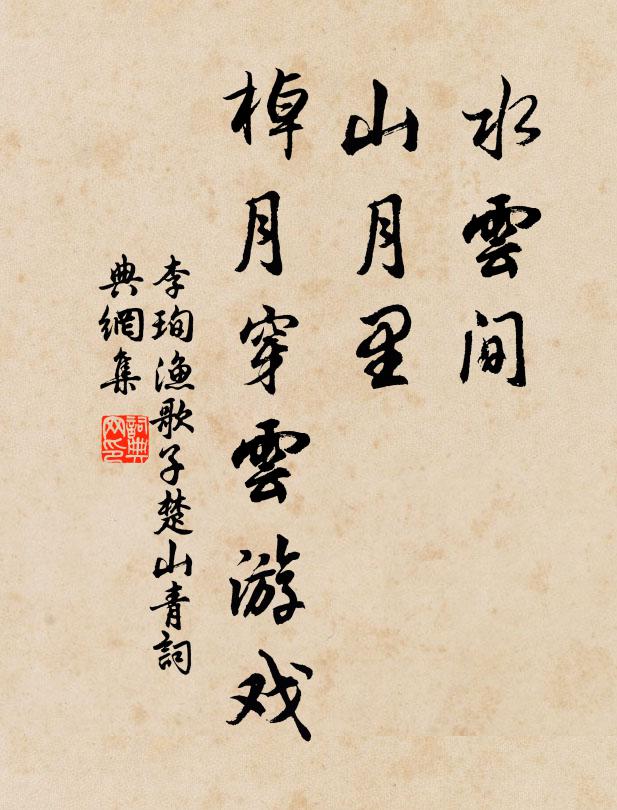 水雲間
山月里
棹月穿雲游戏
李珣渔歌子楚山青詞
典網集
詞典
网印